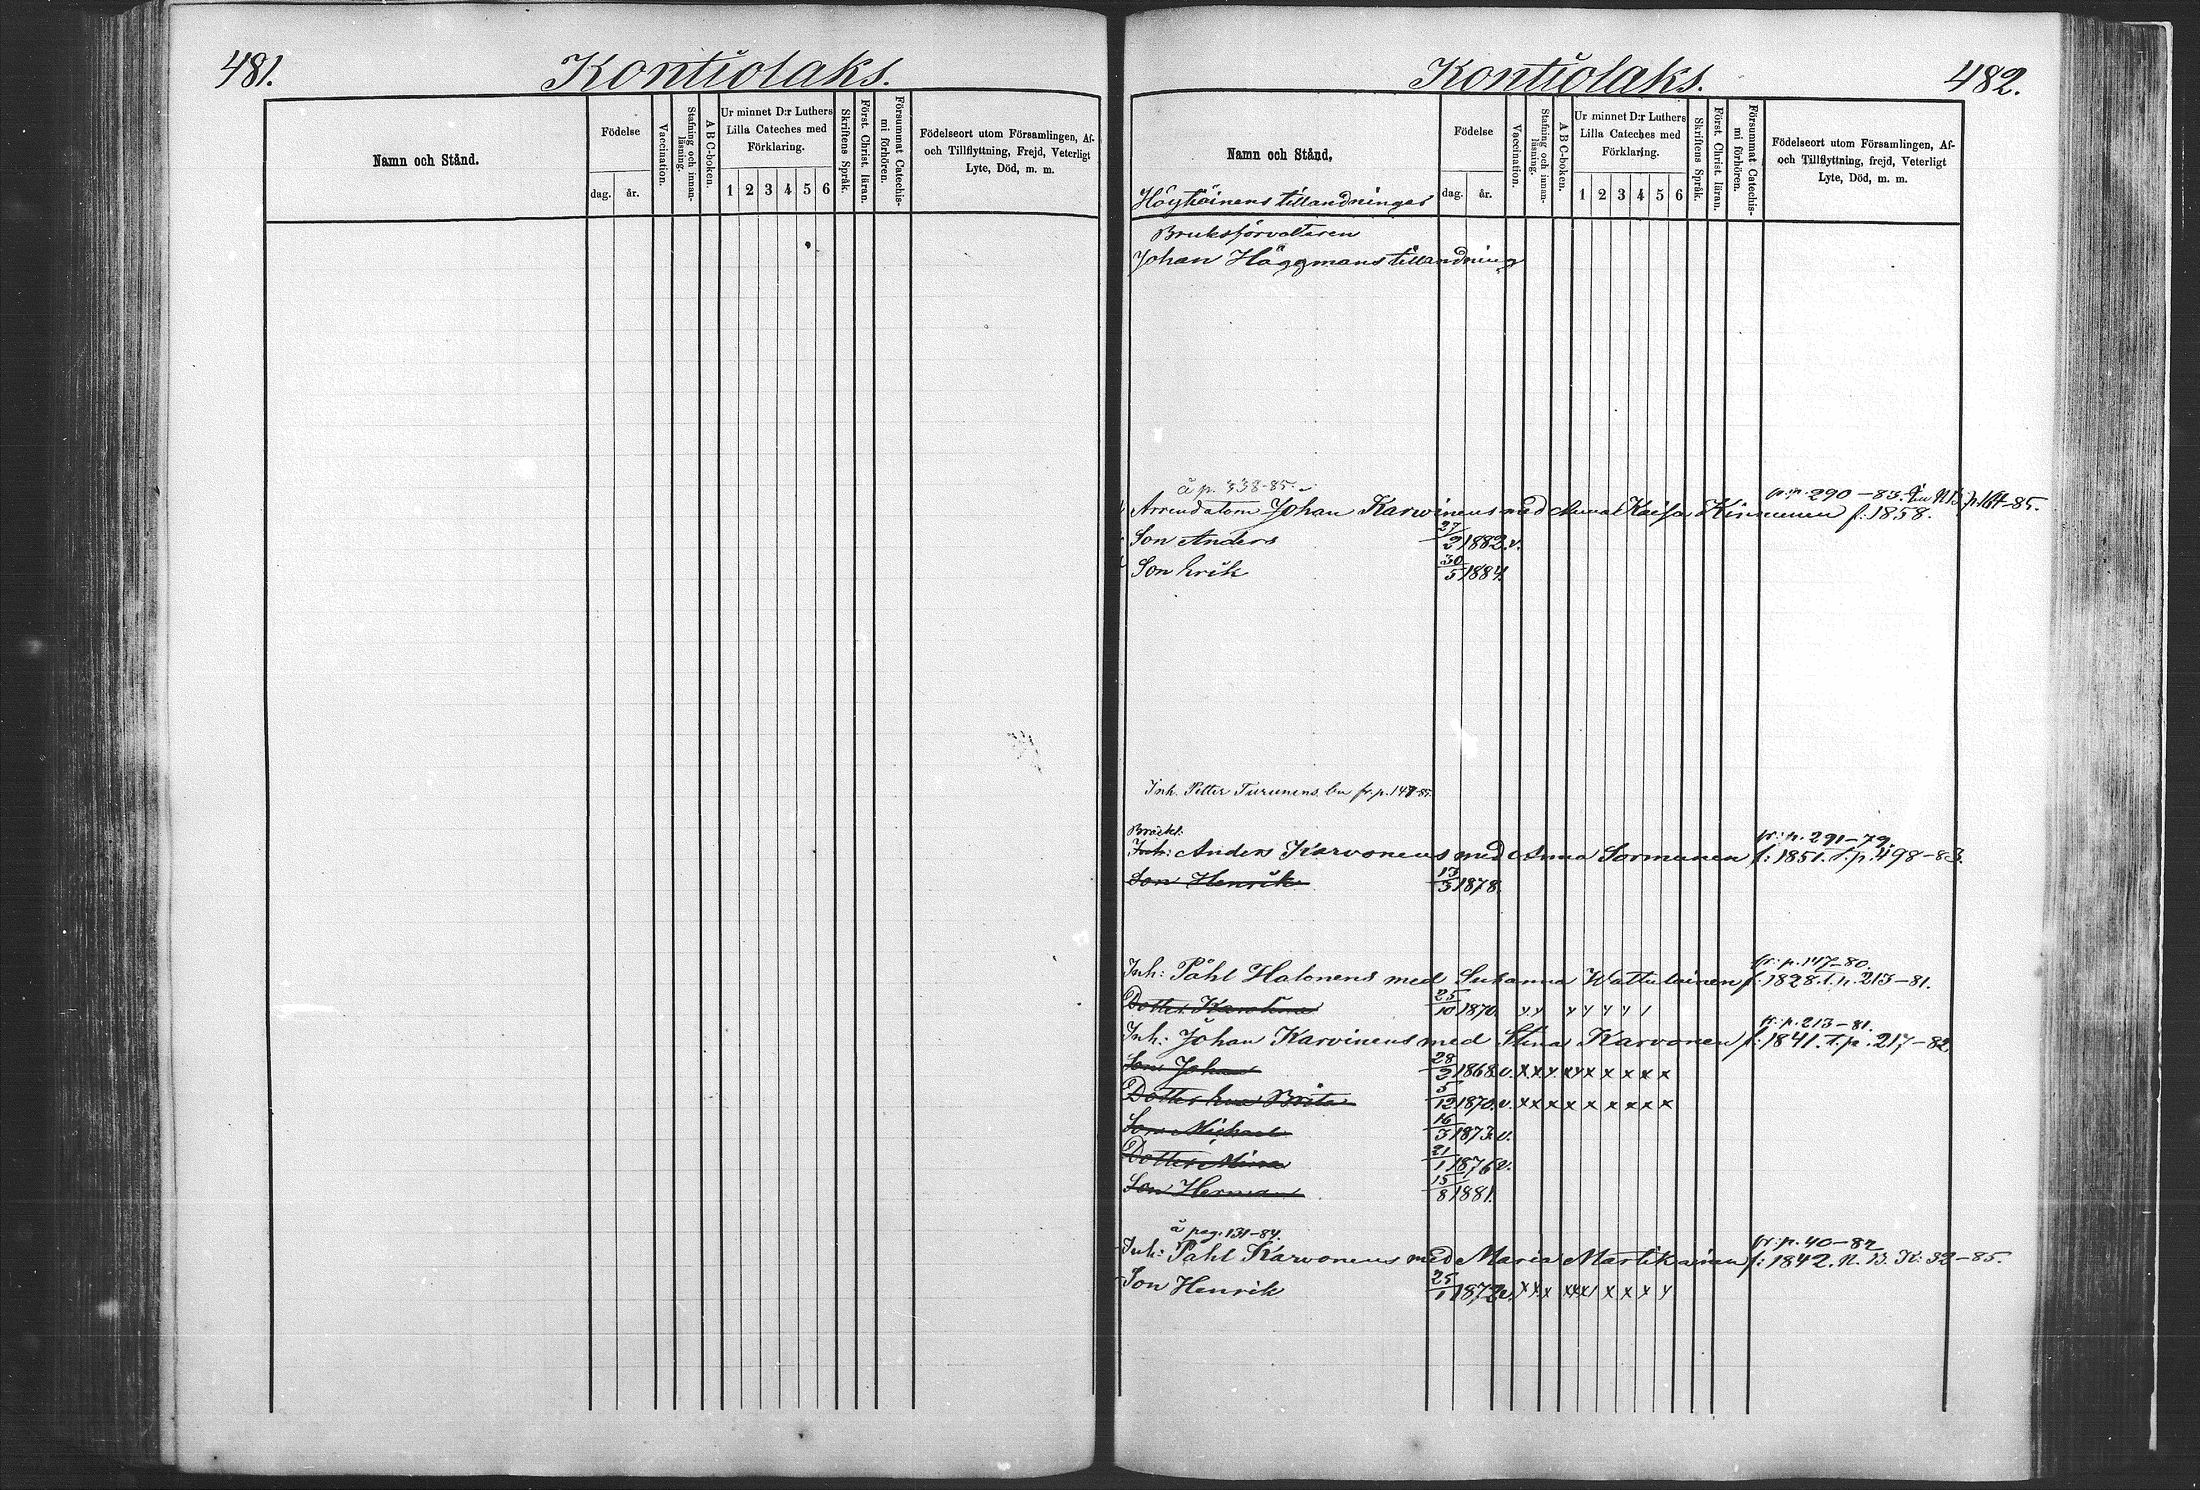 481.
Kontiolaks.
Namn och Stånd.
Födelse
dag.
år.
Vaccination.
Stafning och innan-
läsning.
A B C-boken.
Ur minnet D:r Luthers
Lilla Cateches med
Förklaring.
1 2 3 4 5 6
Skriftens Språk.
Först. Christ. läran.
Försummat Catechis-
mi förhören.
Födelseort utom Församlingen, Af-
och Tillflyttning, Frejd, Veterligt
Lyte, Död, m. m.
Kontiolaks.
482.
Namn och Stånd.
Höytiäinens tillandningar
Födelse
dag.
år.
Vaccination.
Stafning och innan-
läsning.
A B C-boken.
Ur minnet D:r Luthers
Lilla Cateches med
Förklaring.
1 2 3 4 5 6
Skriftens Språk.
Först. Christ. läran.
Försummat Catechis-
mi förhören.
Födelseort utom Församlingen, Af-
och Tillflyttning, frejd, Veterligt
Lyte, Död, m. m.
Bruksförvaltaren
Johan Häggmans tillandning
å p. 338-85.
fr: p. 290-83. p. 164-85.
Arrendatorn Johan Karvinens med Anna Kaisa Kinnunen f: 1858.
Son Anders 27/2 1882. v.
Son Erik 30/5 1884.
Inh. Petter Turunens fr. p. 147-85.
Bräckl:
fr: p. 291-79.
Inh: Anders Karvonens med Anna Sormunen f: 1851. T. p. 498-83.
Son Henrik 13/5 1878.
fr: p. 117-80.
Inh: Påhl Halonens med Susanna Wattulainen f: 1828. T. p. 213-81.
Dotter Karolina 25/10 1870.
fr: p. 213-81.
Inh: Johan Karvinens med Stina Karvonen f: 1841. T. p. 217-82
Son Johan 28/2 1868. v. x x y x y x x x x x
Dotter Eva Brita 5/12 1870. v. x x x x x x x x x
Son Michael 16/3 1873. v.
Dotter Mina 21/1 1876 v.
Son Herman 15/8 1881.
å pag. 131-84.
fr: p. 40-82
Inh: Påhl Karvonens med Maria Martikainen f: 1842. N. B. K: 32-85.
Son Henrik 25/1 1872 v.